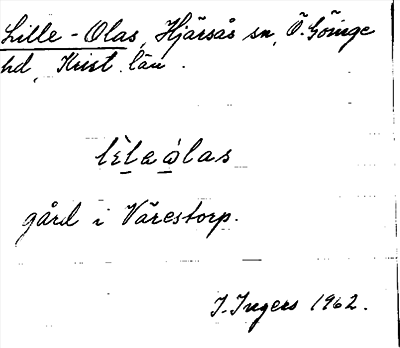 Lille-Olas, Hjärsås sn, Ö. Göinge
hd, Krist. län.
lìlaòlas
gård i Värestorp.
I. Ingers 1962.